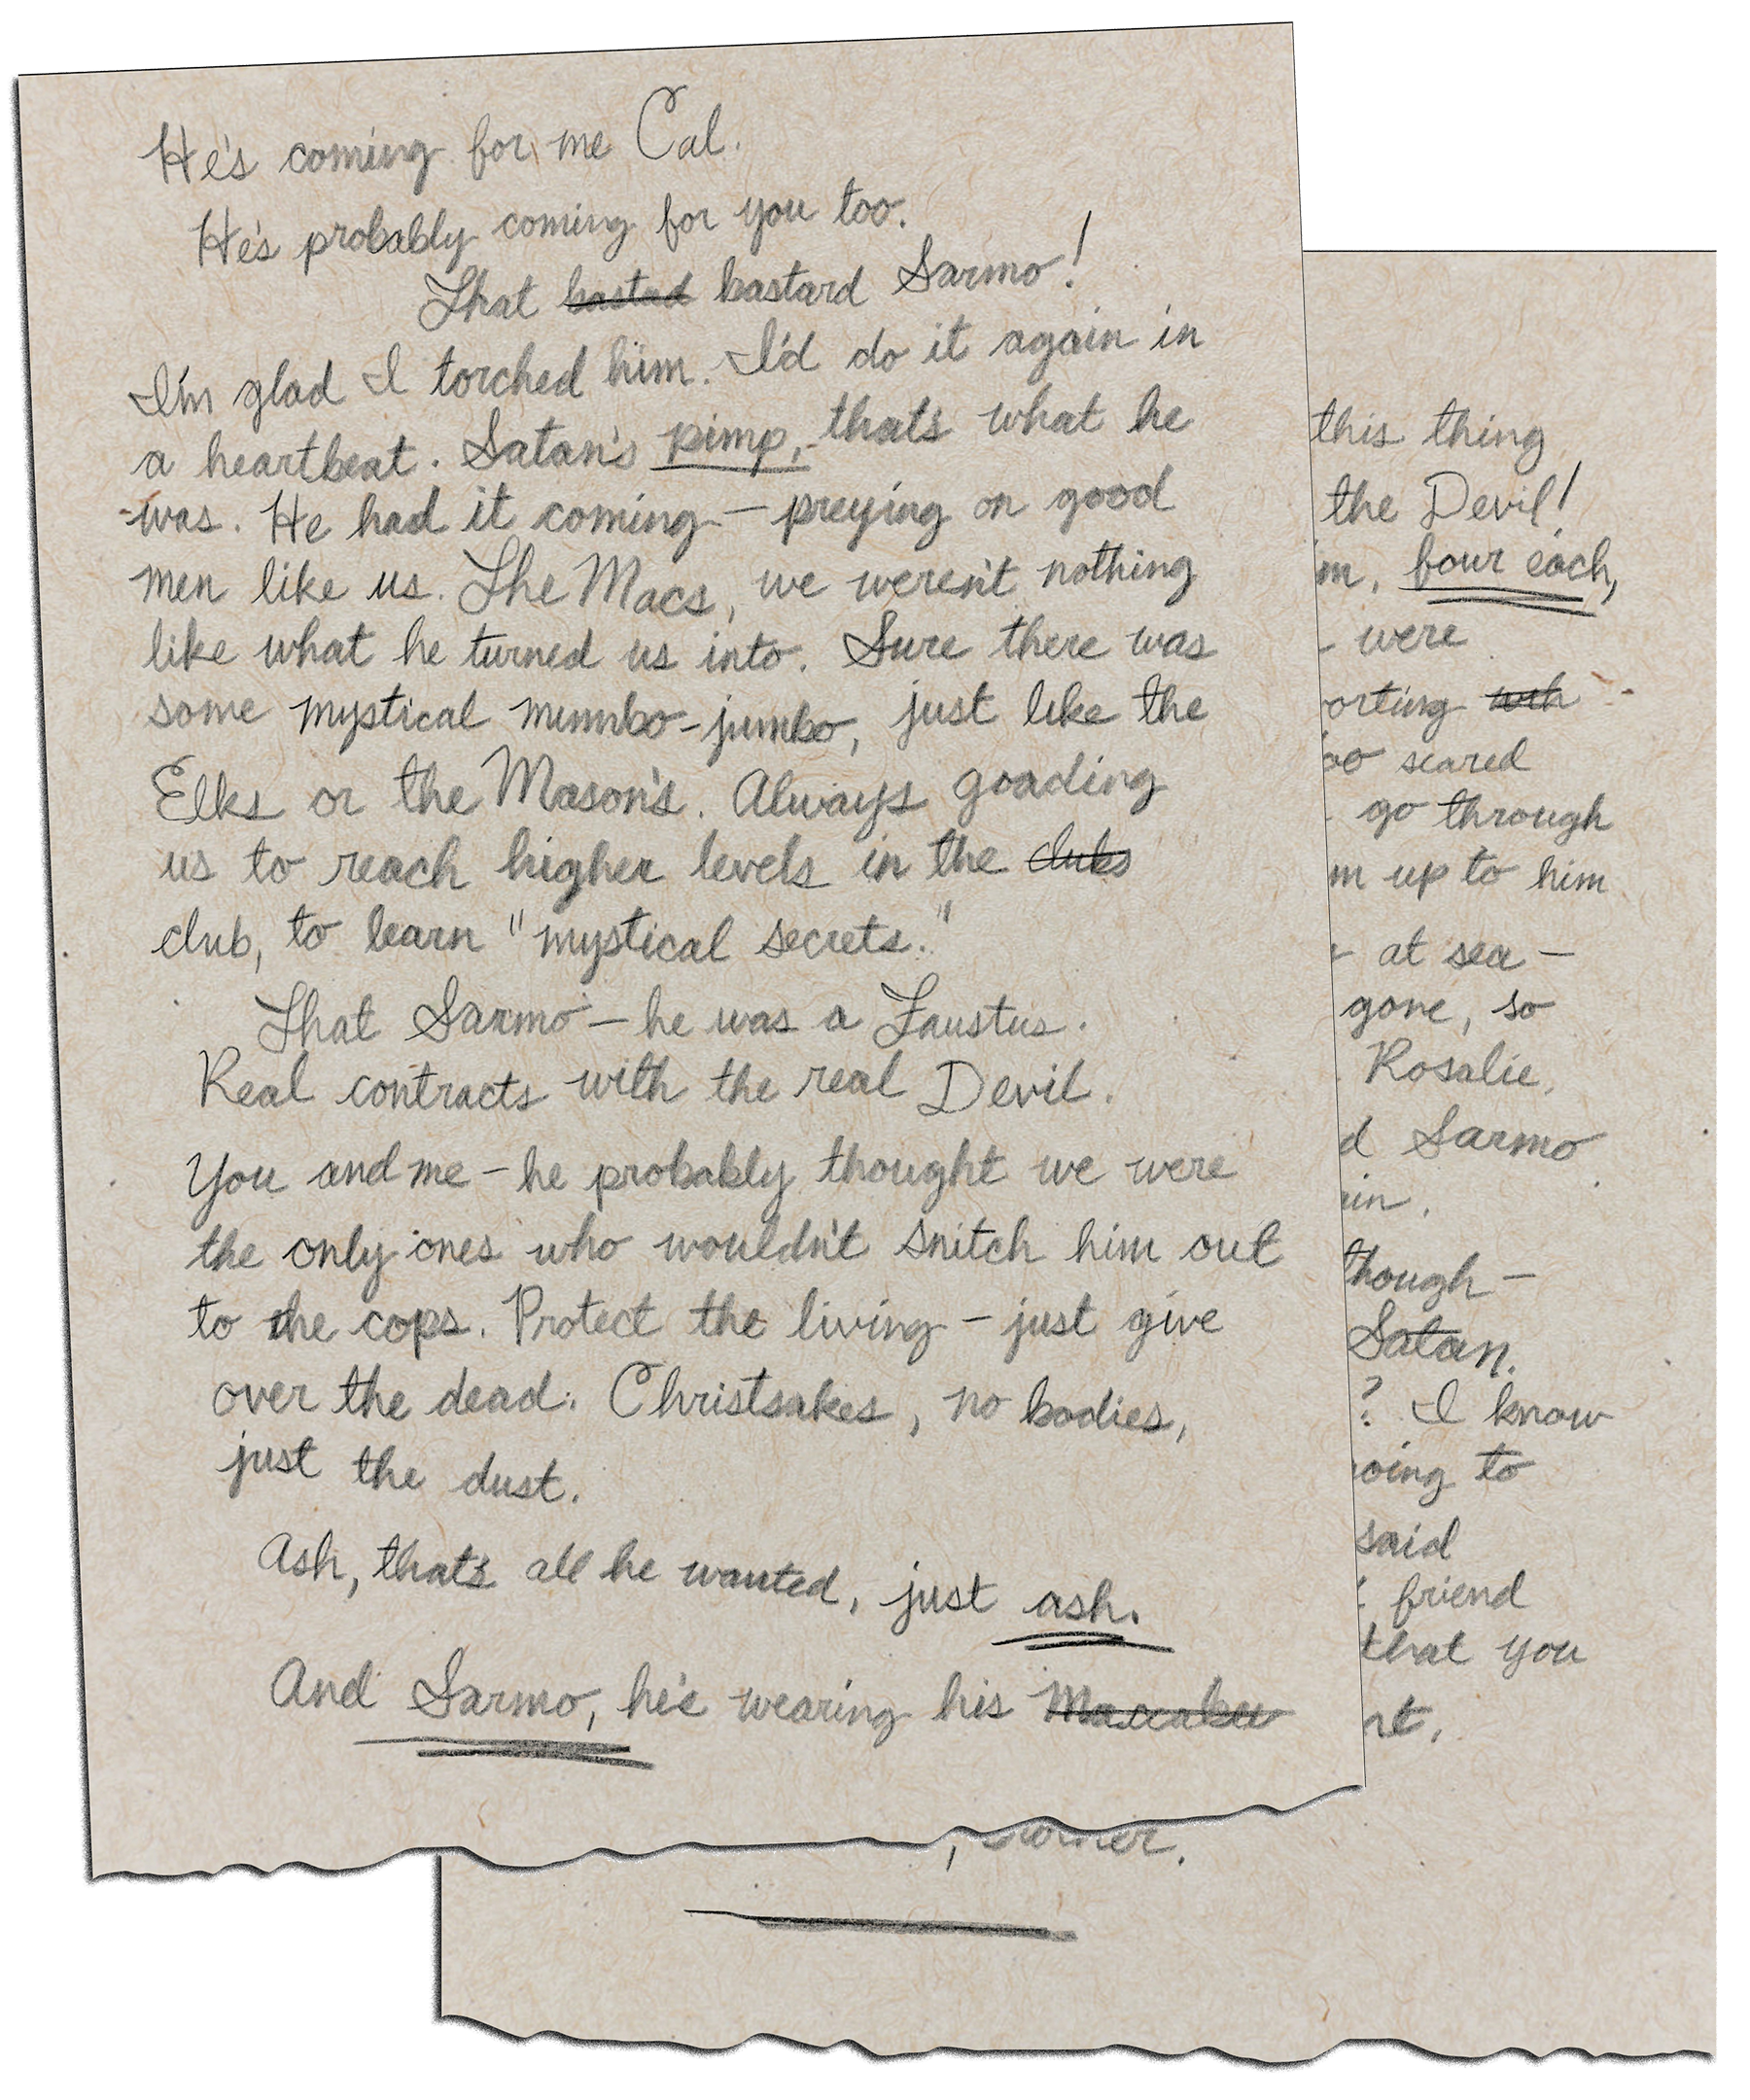 He's coming for me Cal.
He's probably coming for you too.
That bastad bastard Sarmo!
I'm glad I torched him. I'd do it again in
a heartbeat. Satan's pimp, that's what he
was. He had it coming – preying on good
men like us. The Macs, we weren't nothing
like what he turned us into. Sure there was
some mystical mumbo-jumbo, just like the
Elks or the Mason's. Always goading
us to reach higher levels in the clubs
club, to learn "mystical secrets."
That Sarmo – he was a Faustus.
Real contracts with the real Devil.
You and me – he probably thought we were
the only ones who wouldn't snitch him out
to the cops. Protect the living – just give
over the dead. Christsakes, no bodies,
just the dust.
Ash, that's all he wanted, just ash.
And Sarmo, he's wearing his
this thing
the Devil!
m, four each,
– were
orting
oo scared
go through
m up to him
at sea –
gone, so
Rosalie,
d Sarmo
in.
though –
Satan.
? I know
oing to
said
friend
that you
nt,